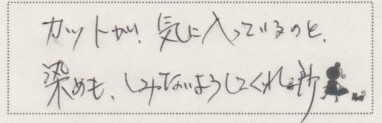 カットが、気に入っているのと、
染めも、しみないようしてくれる所